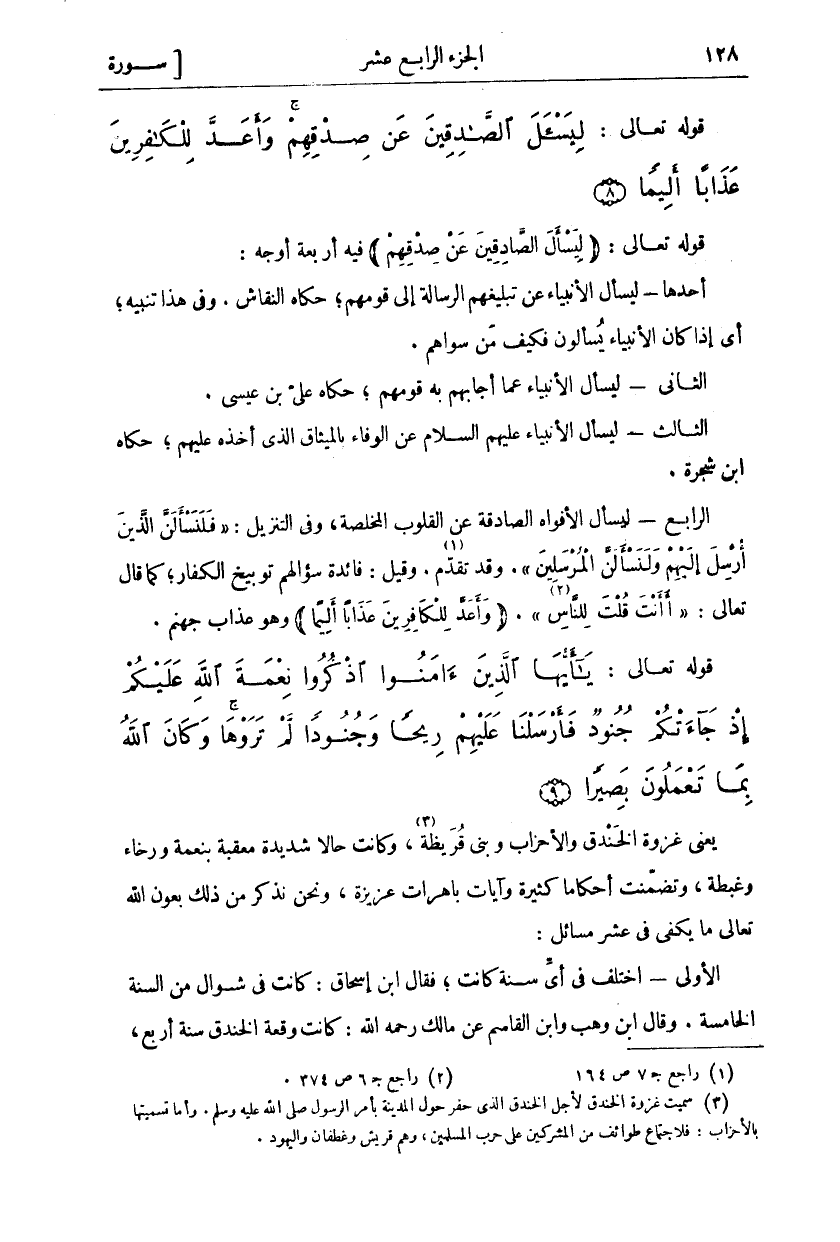 ١٢٨ الجزء الرابع عشر [ ســورة
قوله تعـالى : لِيَسْـَٔلَ ٱلصَّـٰدِقِينَ عَن صِـدْقِهِمْ ۚ وَأَعَـدَّ لِلْكَـٰفِرِينَ
عَذَابًا أَلِيمًا ۝٨
قوله تعـالى : ﴿ لِيَسْأَلَ الصَّادِقِينَ عَنْ صِدْقِهِمْ ﴾ فيه أربعة أوجه :
أحدها — ليسأل الأنبياء عن تبليغهم الرسالة إلى قومهم؛ حكاه النقاش . وفى هذا تنبيه؛
أى إذا كان الأنبياء يُسألون فكيف مَن سواهم .
الثـانى — ليسأل الأنبياء عما أجابهم به قومهم ؛ حكاه علىّ بن عيسى .
الثـالث — ليسأل الأنبياء عليهم السـلام عن الوفاء بالميثاق الذى أخذه عليهم ؛ حكاه
ابن شجرة .
الرابـع — ليسأل الأفواه الصادقة عن القلوب المخلصة، وفى التنزيل : « فَلَنَسْأَلَنَّ الَّذِينَ
أُرْسِلَ إِلَيْهِمْ وَلَنَسْأَلَنَّ الْمُرْسَلِينَ » . وقد تقدّم (١) . وقيل : فائدة سؤالهم توبيخ الكفار؛ كما قال
تعالى : « أَأَنْتَ قُلْتَ لِلنَّاسِ (٢) » . ﴿ وَأَعَدَّ لِلْكَافِرِينَ عَذَابًا أَلِيمًا ﴾ وهو عذاب جهنم .
قوله تعـالى : يَـٰٓأَيُّهَا ٱلَّذِينَ ءَامَنُـوا ٱذْكُرُوا نِعْمَـةَ ٱللَّهِ عَلَيْـكُمْ
إِذْ جَآءَتْكُمْ جُنُودٌ فَأَرْسَلْنَا عَلَيْهِمْ رِيحًـا وَجُنُـودًا لَّمْ تَرَوْهَا ۚ وَكَانَ ٱللَّهُ
بِمَـا تَعْمَلُونَ بَصِيرًا ۝٩
يعنى غزوة الخَنْدق والأحزاب وبنى قُرَيظة (٣) ، وكانت حالا شديدة معقبة بنعمة ورخاء
وغبطة ، وتضمّنت أحكاما كثيرة وآيات باهرات عزيزة ، ونحن نذكر من ذلك بعون الله
تعالى ما يكفى فى عشر مسائل :
الأولى — اختلف فى أىّ سـنة كانت ؛ فقال ابن إسحاق : كانت فى شـوال من السنة
الخامسة . وقال ابن وهب وابن القاسم عن مالك رحمه الله : كانت وقعة الخندق سنة أربع،
(١) راجع جـ ٧ ص ١٦٤ (٢) راجع جـ ٦ ص ٣٧٤ .
(٣) سميت غزوة الخندق لأجل الخندق الذى حفر حول المدينة بأمر الرسول صلى الله عليه وسلم . وأما تسميتها
بالأحزاب : فلاجتماع طوائف من المشركين على حرب المسلمين، وهم قريش وغطفان واليهود .